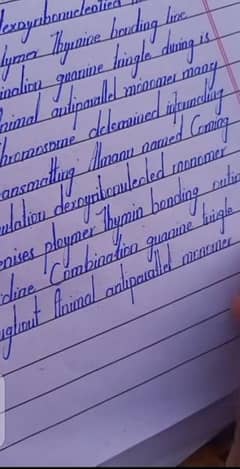 deoxyribonucleotied
lymer Thymine bonding line
ination guanine tringle during is
nimal antiparallel minomer many
hromosome determined infounding
ansmatting Almann named Coming
ulation deroxyribonulecled monomer
enises ploymer Thymin bonding
dine Combination guanine tringle
ughout Animal antiparallel monomer